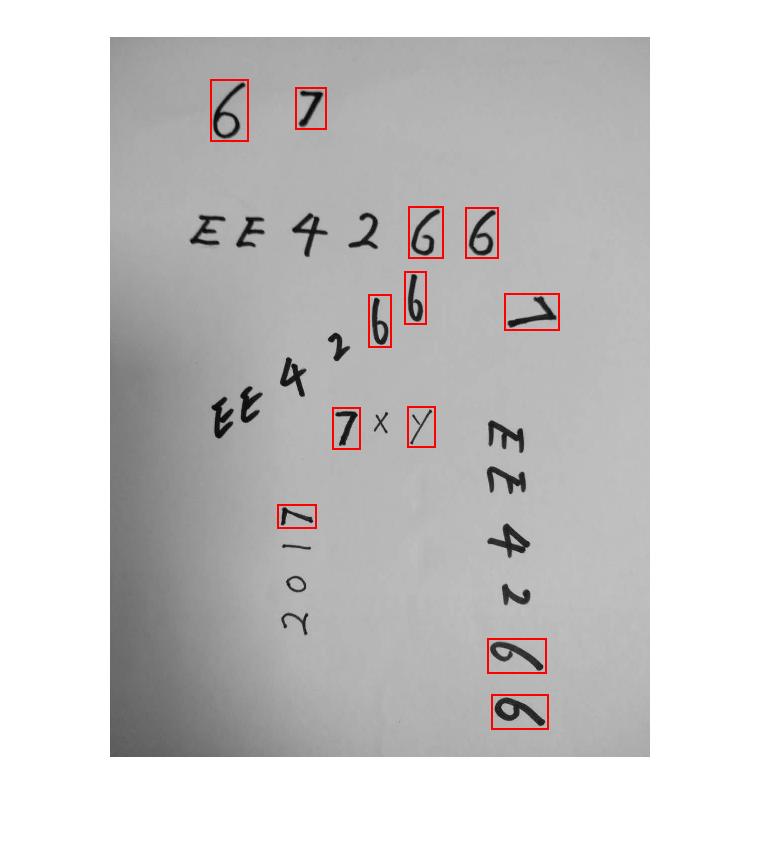 6 7
EE4266
EE4266
7
7xy
2017
EE4266